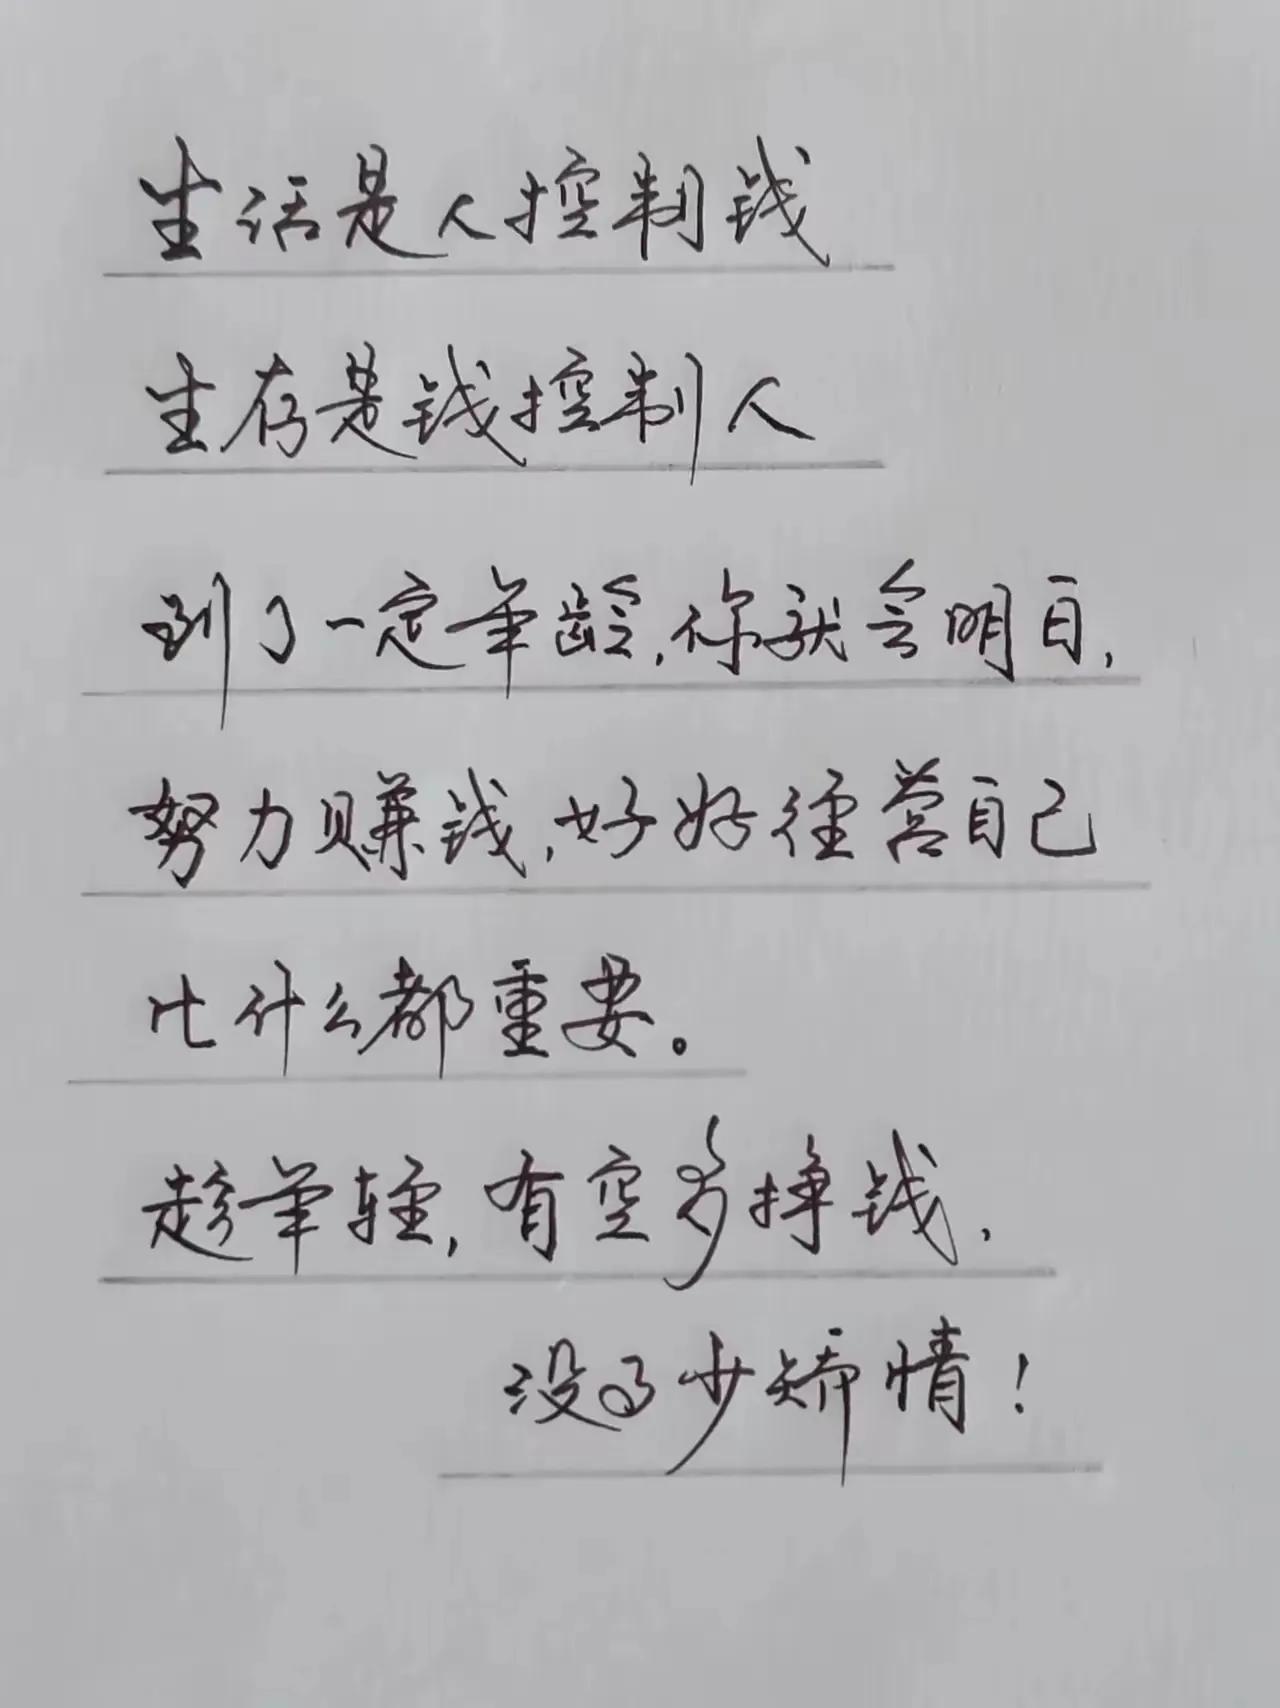 生活是人控制钱
生存是钱控制人
到了一定年龄,你就会明白,
努力赚钱,好好经营自己
比什么都重要。
趁年轻,有空多挣钱,
没事少矫情!